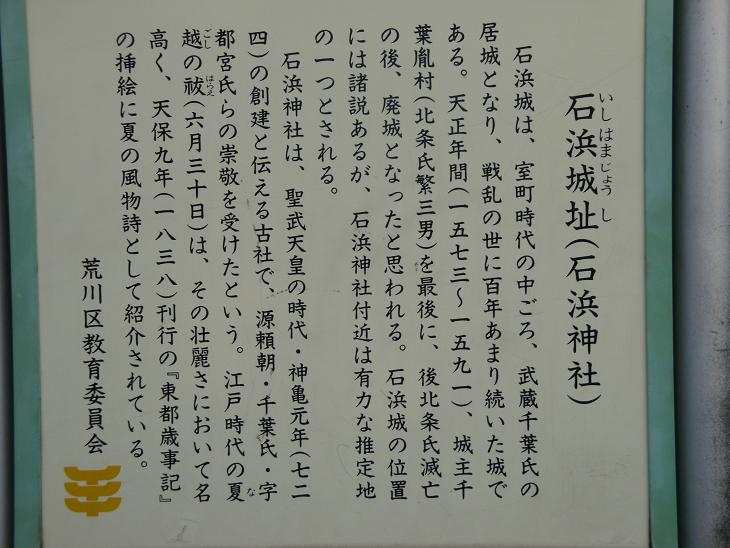 石浜城址(石浜神社)
いしはまじょうし
石浜城は、室町時代の中ごろ、武蔵千葉氏の
居城となり、戦乱の世に百年あまり続いた城で
ある。天正年間(一五七三～一五九一)、城主千
葉胤村(北条氏繁三男)を最後に、後北条氏滅亡
の後、廃城となったと思われる。石浜城の位置
には諸説あるが、石浜神社付近は有力な推定地
の一つとされる。
石浜神社は、聖武天皇の時代・神亀元年(七二
四)の創建と伝える古社で、源頼朝・千葉氏・宇
都宮氏らの崇敬を受けたという。江戸時代の夏
な
越の祓(六月三十日)は、その壮麗さにおいて名
ごし はらえ
高く、天保九年(一八三八)刊行の『東都歳事記』
の挿絵に夏の風物詩として紹介されている。
荒川区教育委員会